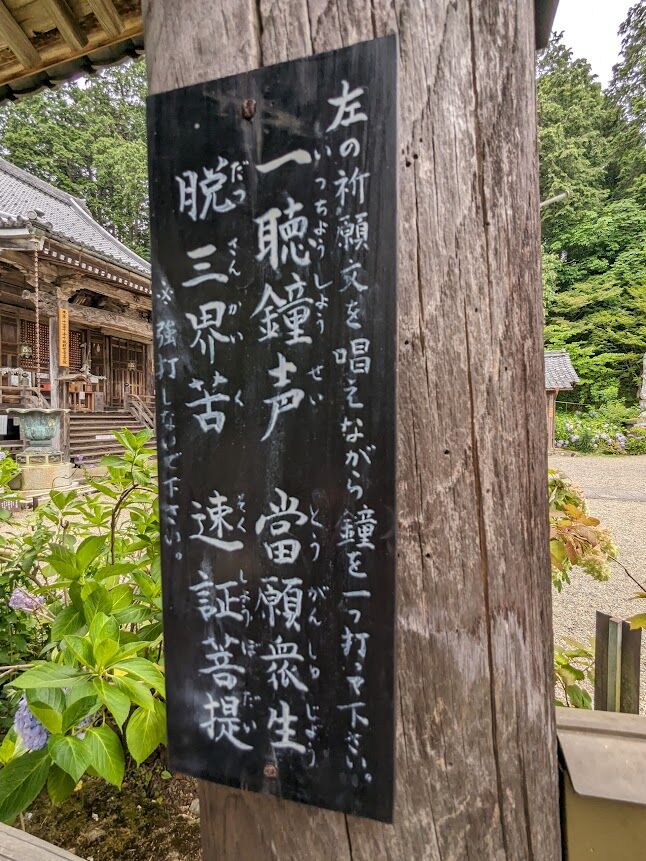 左の祈願文を唱えながら鐘を一つ打って下さい。
いっちようしよう せい とう がん しゅ じょう
一聴鐘声 當願衆生
だつ さん かい く そく しょう ぼ だい
脱三界苦 速証菩提
※強打しないで下さい。